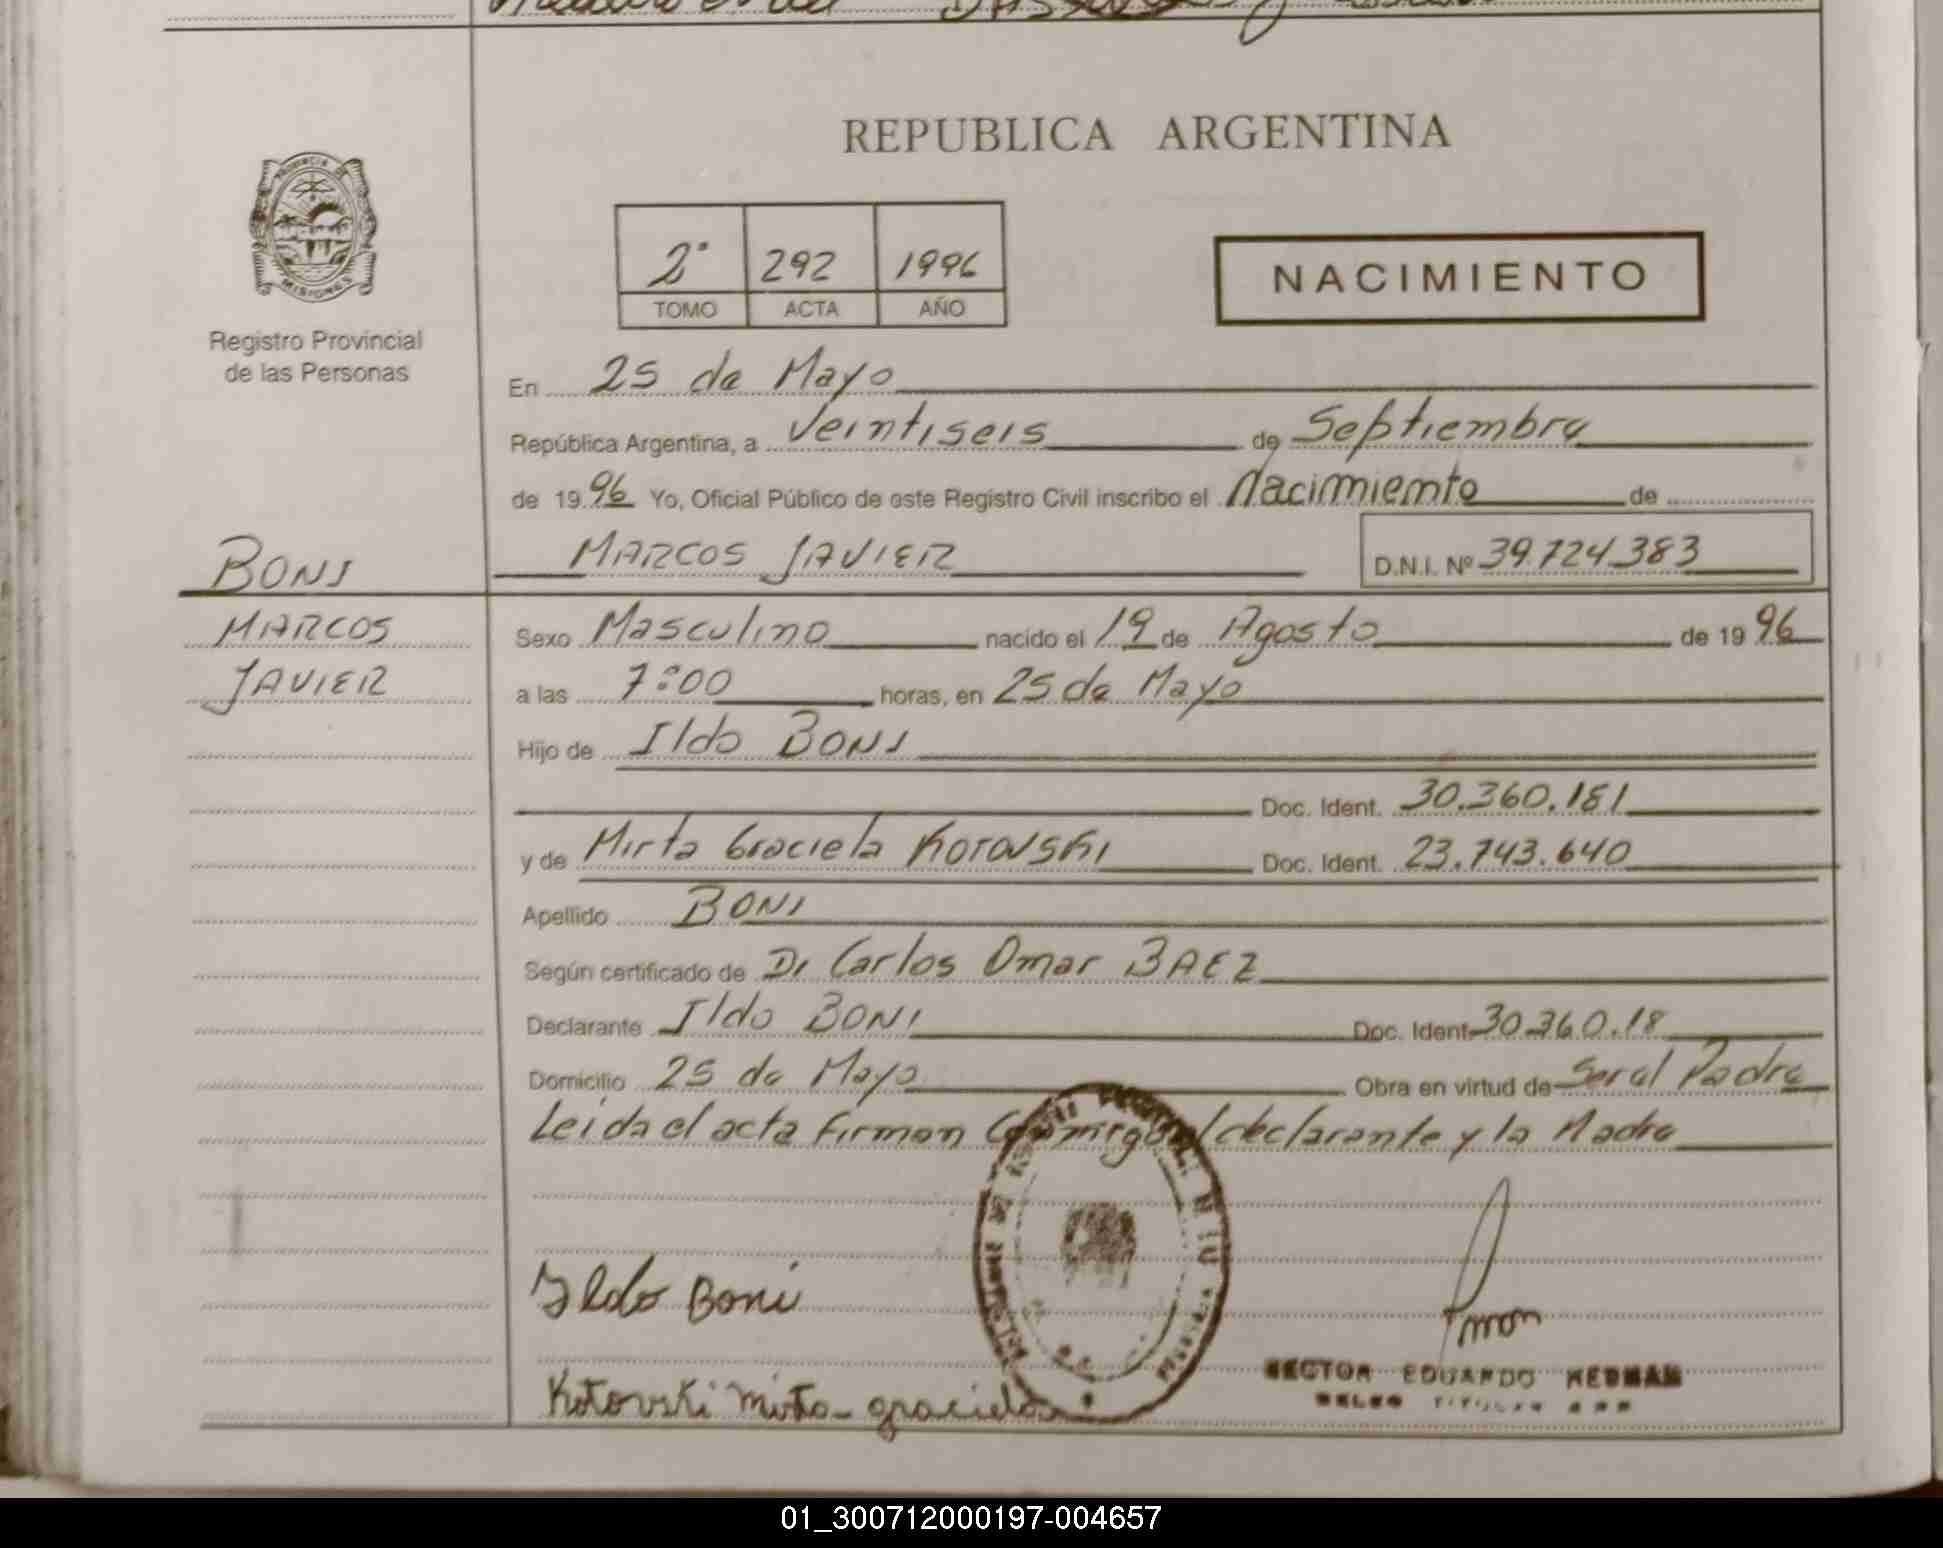 REPUBLICA ARGENTINA
PROVINCIA DE
MISIONES
Registro Provincial
de las Personas
2° 292 1996
TOMO ACTA AÑO
NACIMIENTO
En 25 de Mayo
República Argentina, a Veintiseis de Septiembre
de 19 96 Yo, Oficial Público de este Registro Civil inscribo el Nacimiento de
BONI MARCOS JAVIER D.N.I. Nº 39.724.383
MARCOS Sexo Masculino nacido el 19 de Agosto de 19 96
JAVIER a las 7:00 horas, en 25 de Mayo
Hijo de Ildo BONI
Doc. Ident. 30.360.181
y de Mirta Graciela KOTOVSKI Doc. Ident. 23.743.640
Apellido BONI
Según certificado de Dr Carlos Omar BAEZ
Declarante Ildo BONI Doc. Ident 30.360.18
Domicilio 25 de Mayo Obra en virtud de Ser el Padre
Leida el acta firman Conmigo el declarante y la Madre
Ildo Boni
HECTOR EDUARDO
Kotovski mirta graciela
01_300712000197-004657